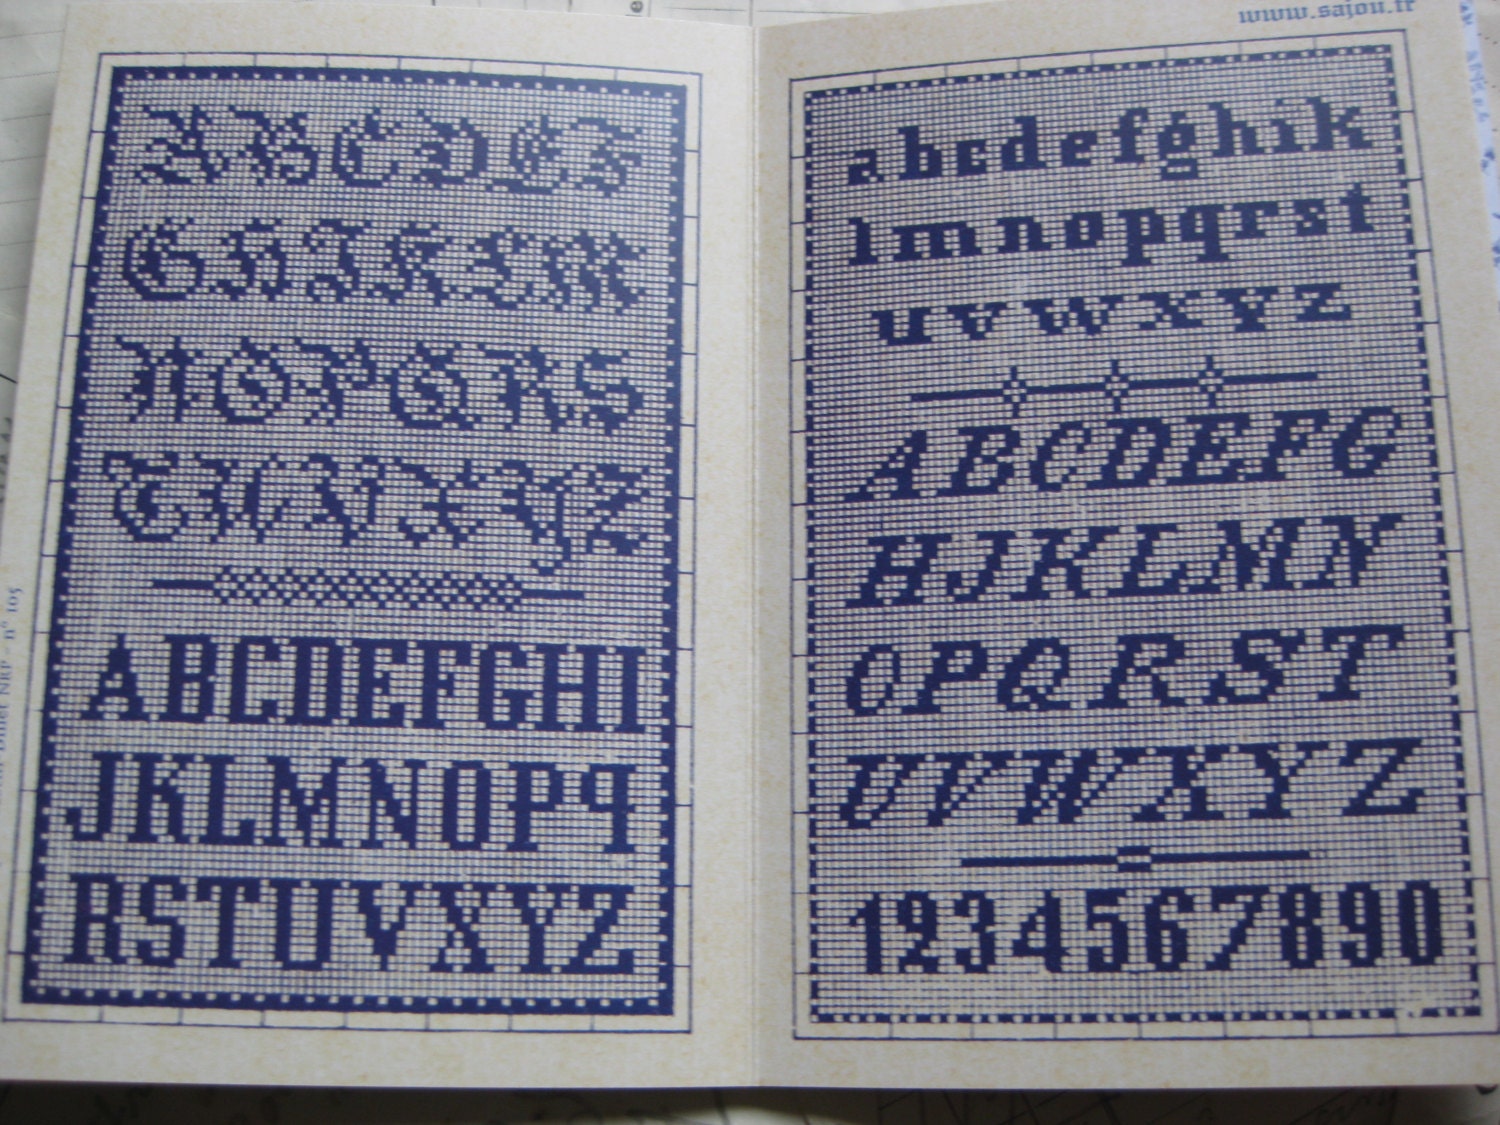 ABCDEF
GHIKLM
NOPQRS
TUVXYZ
ABCDEFGHI
JKLMNOPQ
RSTUVXYZ
NRP - n° 105
www.sajou.fr
abcdefghik
lmnopqrst
uvwxyz
ABCDEFG
HJKLMN
OPQRST
UVWXYZ
1234567890